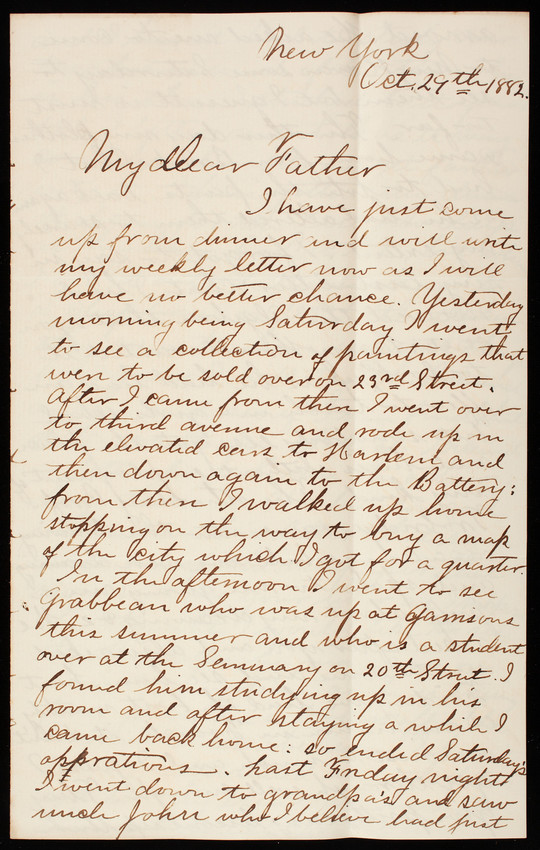 New York
Oct. 29th 1882.
My dear Father
I have just come
up from dinner and will write
my weekly letter now as I will
have no better chance. Yesterday
morning being Saturday I went
to see a collection of paintings that
were to be sold over on 23rd Street.
After I came from there I went over
to third avenue and rode up in
the elevated cars to Harlem and
then down again to the Battery:
from there I walked up home
stopping on the way to buy a map
of the city which I got for a quarter.
In the afternoon I went to see
Grabbean who was up at Garrisons
this summer and who is a student
over at the Seminary on 20th Street. I
found him studying up in his
room and after staying a while I
came back home: so ended Saturday's
opprations. Last Friday night
I went down to grandpa's and saw
uncle John who I believe had just